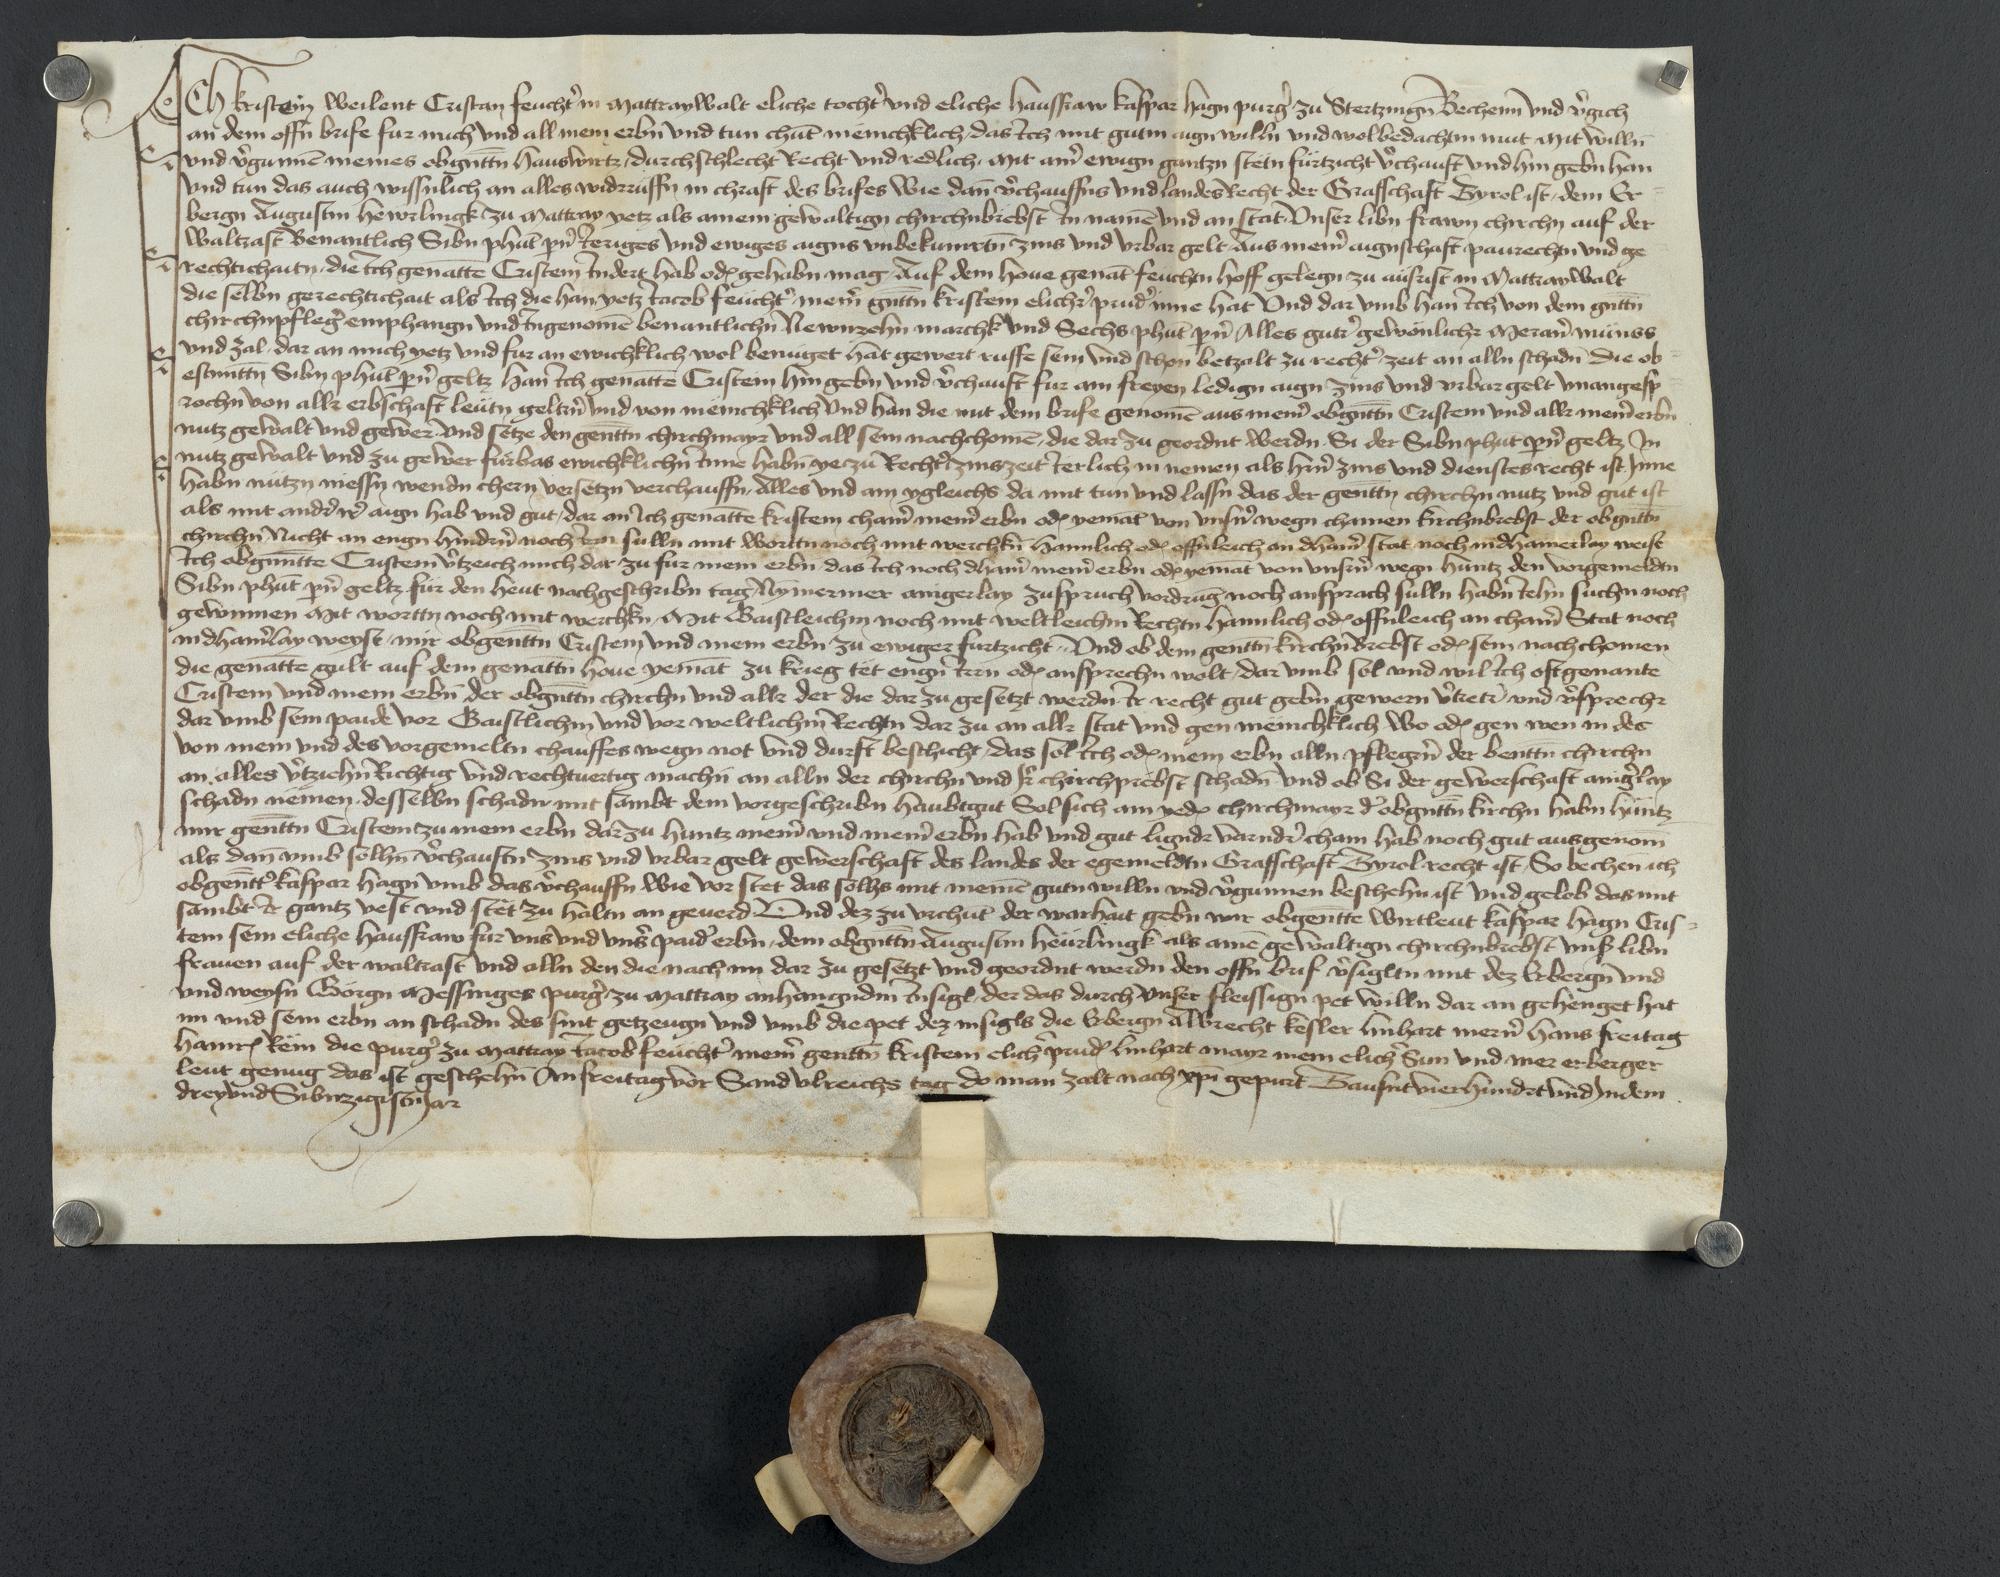 Ich kristein weilent Cristan feuchtˀ in Mattraywalt eliche tochtˀ vnd eliche hausfraw kaspar hagn purgˀ zu Stertzingn Bechenn vnd vˀgich
an dem offn brife fur mich vnd all mein erbn vnd tun chūt meinchklich das Ich mit gutm aign willn vnd wolbedachtm mut Mit willn
vnd vˀgunnē meines obgn̄ttn hauswirtz durchschlecht Recht vnd redlich Mit amˀ ewign gantzn stetn fürtzicht vˀchauft vnd hin gebn han
vnd tun das auch wissnlich an alles widerrüffn in chraft des brifes Wie dan̄ vˀchauffns vnd landes Recht der Grafschaft Tyrol ist dem Er
bergn Augustin hewrlingk zu Mattray yetz als ainem gewaltign chirchnbrebst In namē vnd an stat Vnser libn frawn chirchn auf der
Waltrast Benantlich Sibn phūt pn̄ Ieriges vnd ewiges aigns vnbekumertn zins vnd vrbar gelt Aus meinˀ aignschaft paurechtn vnd ge
rechtichaitn die Ich genātte Cristein Indert hab odˀ gehabn mag Auf dem houe genāt feuchtn hoff gelegn zu aüsrist in Mattraywalt
die selbn gerechtichait als Ich die han yetz Iacob feuchtˀ meinˀ gn̄ttn kristein elichˀ prudˀ inne hat Vnd dar vmb han Ich von dem gn̄ttn
chirchnpflegˀ emphangn vnd Ingenomē benantlichn Newnzehn marchk vnd Sechs phūt pn̄ Alles gutˀ gewonlichˀ Meranˀ münss
vnd zal dar an mich yetz vnd fur an ewichklich wol benüget hat gewert rüffe sein vnd schon betzalt zu rechtˀ zeit an alln schadn Die ob
estim̄ttn Sibn phūt pn̄ geltz han Ich genātte Cristein hin gebn vnd vˀchauft fur ain freyen ledign aign zins vnd vrbar gelt vnangesp
rochn von allˀ erbschaft leütn geltnˀ vnd von meinchklich Vnd han die mit dem brife genomē aus meinˀ obgn̄ttn Cristein vnd allˀ meinˀ erbn
nutz gewalt vnd gewer Vnd setze den gen̄ttn chirchmayr vnd all sein nachchomē die dar zu geordnt werdn Si der Sibn phut pn̄ geltz In
nutz gewalt vnd zu gewer fürbas ewichklichn Inne habn yezu Rechtˀ zinszeit Ierlich in nemen als hinˀ zins vnd dienstes recht ist Inne
habn nützn niessn wendn chern versetzn verchauffn Alles vnd ain ygleichs da mit tun vnd lassn das der gen̄ttn chirchn nutz vnd gut ist
als mit andˀ irˀ aign hab vnd gut dar an Ich genātte kristein chainˀ meinˀ erbn odˀ yemāt von vnsnˀ wegn chainen kirchnbrebst der obgn̄ttn
chirchn Nicht an engn hindrn noch Irrn sulln mit wortn noch mit werchkn haimlich odˀ offnleich an dhainˀ stat noch in dhainerlay weise
Ich obgn̄tte Cristein vˀtzeich mich dar zu fur mein erbn das Ich noch dhainˀ meinˀ erbn odˀ yemāt von vnsrnˀ wegn huntz den vorgemeldtn
Sibn phūt pn̄ geltz für den heut nachgeschribn tag Nymermer ainigerlay zuspruch vordrūg noch ansprach sulln habn Iehn suchn noch
gewinnen Mit wortn noch mit werchkn Mit Gaistleichm noch mit weltleichm Rechtn haimlich odˀ offnleich an chainˀ Stat noch
in dhainˀlay weyse mir obgen̄ttn Cristein vnd mein erbn zu ewiger furtzicht Vnd ob dem gen̄ttn kirchnbrebst odˀ sein nachchomen
die genātte gult auf dem genāttn houe yemāt zu krieg tet engn Irrn odˀ ansprechn wolt dar vmb sol vnd wil Ich oftgenante
Cristein vnd mein erbn der obgn̄ttn chirchn vnd allˀ der die dar zu gesetzt werdn Ir recht gut gebn gewern vˀtretˀ vnd vˀsprechˀ
dar vmb sein paide vor Gaistlichm vnd vor weltlichm Rechtn dar zu an allˀ stat vnd gen meinchklich wo odˀ gen wen in des
von mein vnd des vorgemeltn chauffes wegn not vnd durft beschicht das sol Ich odˀ mein erbn alln pflegnˀ der ben̄ttn chirchn
an alles vˀtziehn Richtig vnd rechtuertig machn an alln der chirchn vnd Irˀ chirchprebst schadn vnd ob Si der gewerschaft ainigˀlay
schadn nemen desselbn schadn mit sambt dem vorgeschribn haubtgut Sol sich ain yedˀ chirchmayr dˀ obgn̄ttn kirchn habn hüntz
mir gen̄ttn Cristein zu mein erbn dar zu huntz meinˀ vnd meinˀ erbn hab vnd gut ligndˀ varndˀ chain hab noch gut ausgenom
als dan̄ vmb solhn vˀchauftn zins vnd vrbar gelt gewerschaft des landes der egemeldtn Grafschaft Tyrol recht ist So bechen ich
obgen̄ttˀ kaspar hagn vmb das vˀchauffn wie vor stet das solhs mit meinē gutn willn vnd vˀgunnen beschehn ist vnd gelob das mit
sambt Ir gantz vest vnd stet zu haltn an geuerd Vnd dez zu vrchut der warhait gebn wir obgen̄tte wirtleut kaspar hagn Cris
tein sein eliche hausfraw fur vns vnd vnsˀ paidˀ erbn dem obgn̄ttn Augustin heürlingk als ainē gewaltign chirchnbrebst vnsˀ libn
frauen auf der waltrast vnd alln den die nach im dar zu gesetzt vnd geordnt werdn den offn brif vˀsigltn mit dez Erbergn vnd
vnd weysn Görgn Messinges purgˀ zu Mattray anhangndm Insigl der das durch vnser fleissign pet willn dar an gehenget hat
im vnd sein erbn an schadn des sint getzeugn vnd vmb die pet dez insigls die Erbergn Albrecht kesler linhart mernˀ hans freitag
hainrˀ kein die purgˀ zu Mattray Iacob feuchtˀ meinˀ gen̄ttn kristein elichˀ prudˀ linhart mayr mein elichˀ Sun vnd mer erberger
leut genug das ist geschehn An freitag vor Sand vlreichs tag do man zalt nach xp̄i gepurt Tausnt vierhundrt vnd Indem
dreyvndSibnzigistn Jar